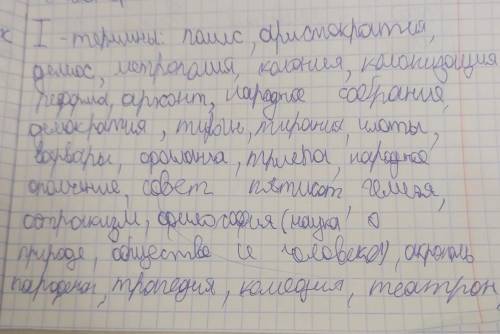 I - термины: полис, аристократия,
демос, метрополия, колония, колонизация
реформа, архонт, народное собрание,
демократия, тиран, тирания, илоты,
варвары, фаланга, триера, народное
ополчение, совет пятисот, гелиэя,
остракизм, философия (наука о
природе, обществе и человеке), акрополь
парфенон, трагедия, комедия, театрон,